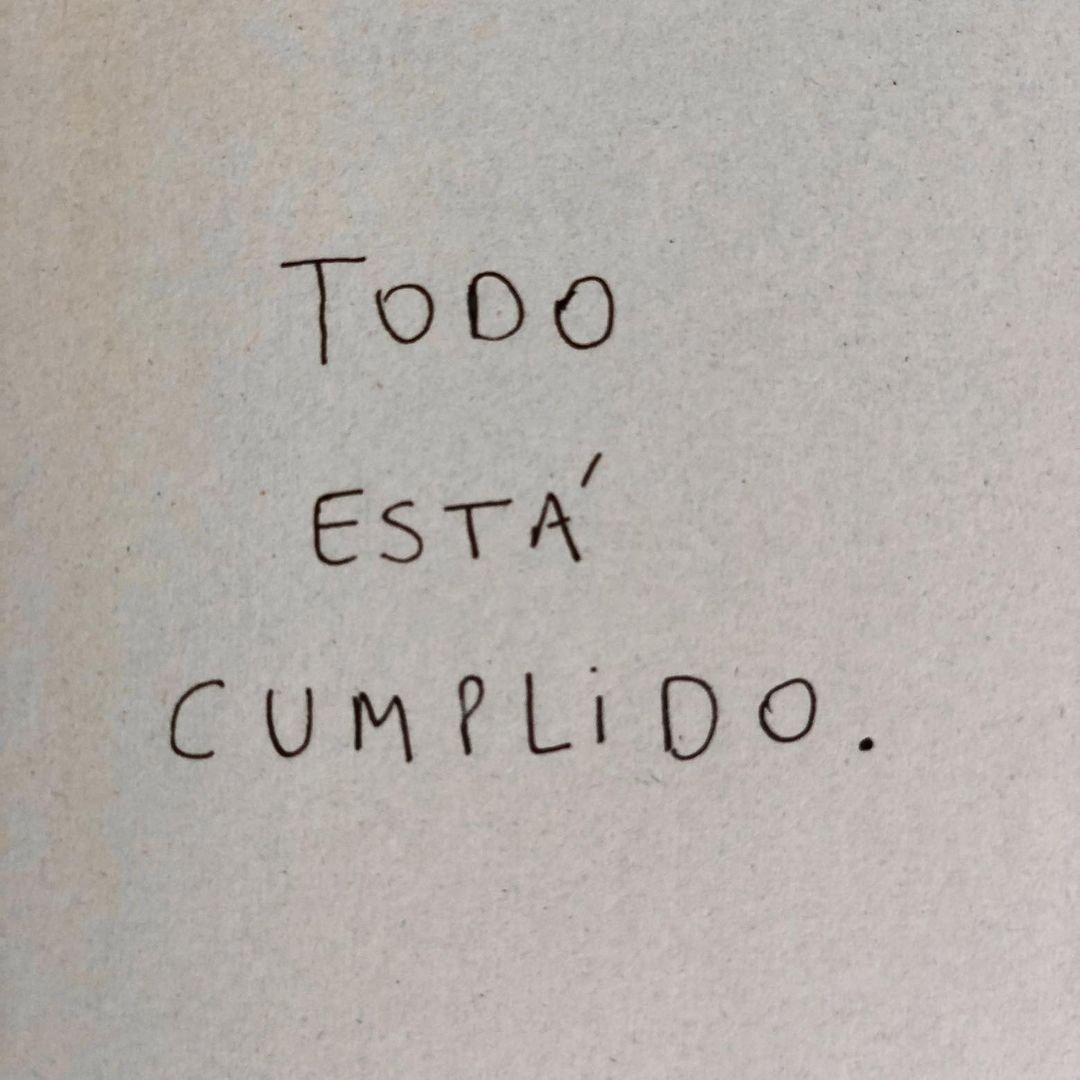 TODO
ESTÁ
CUMPLiDO.